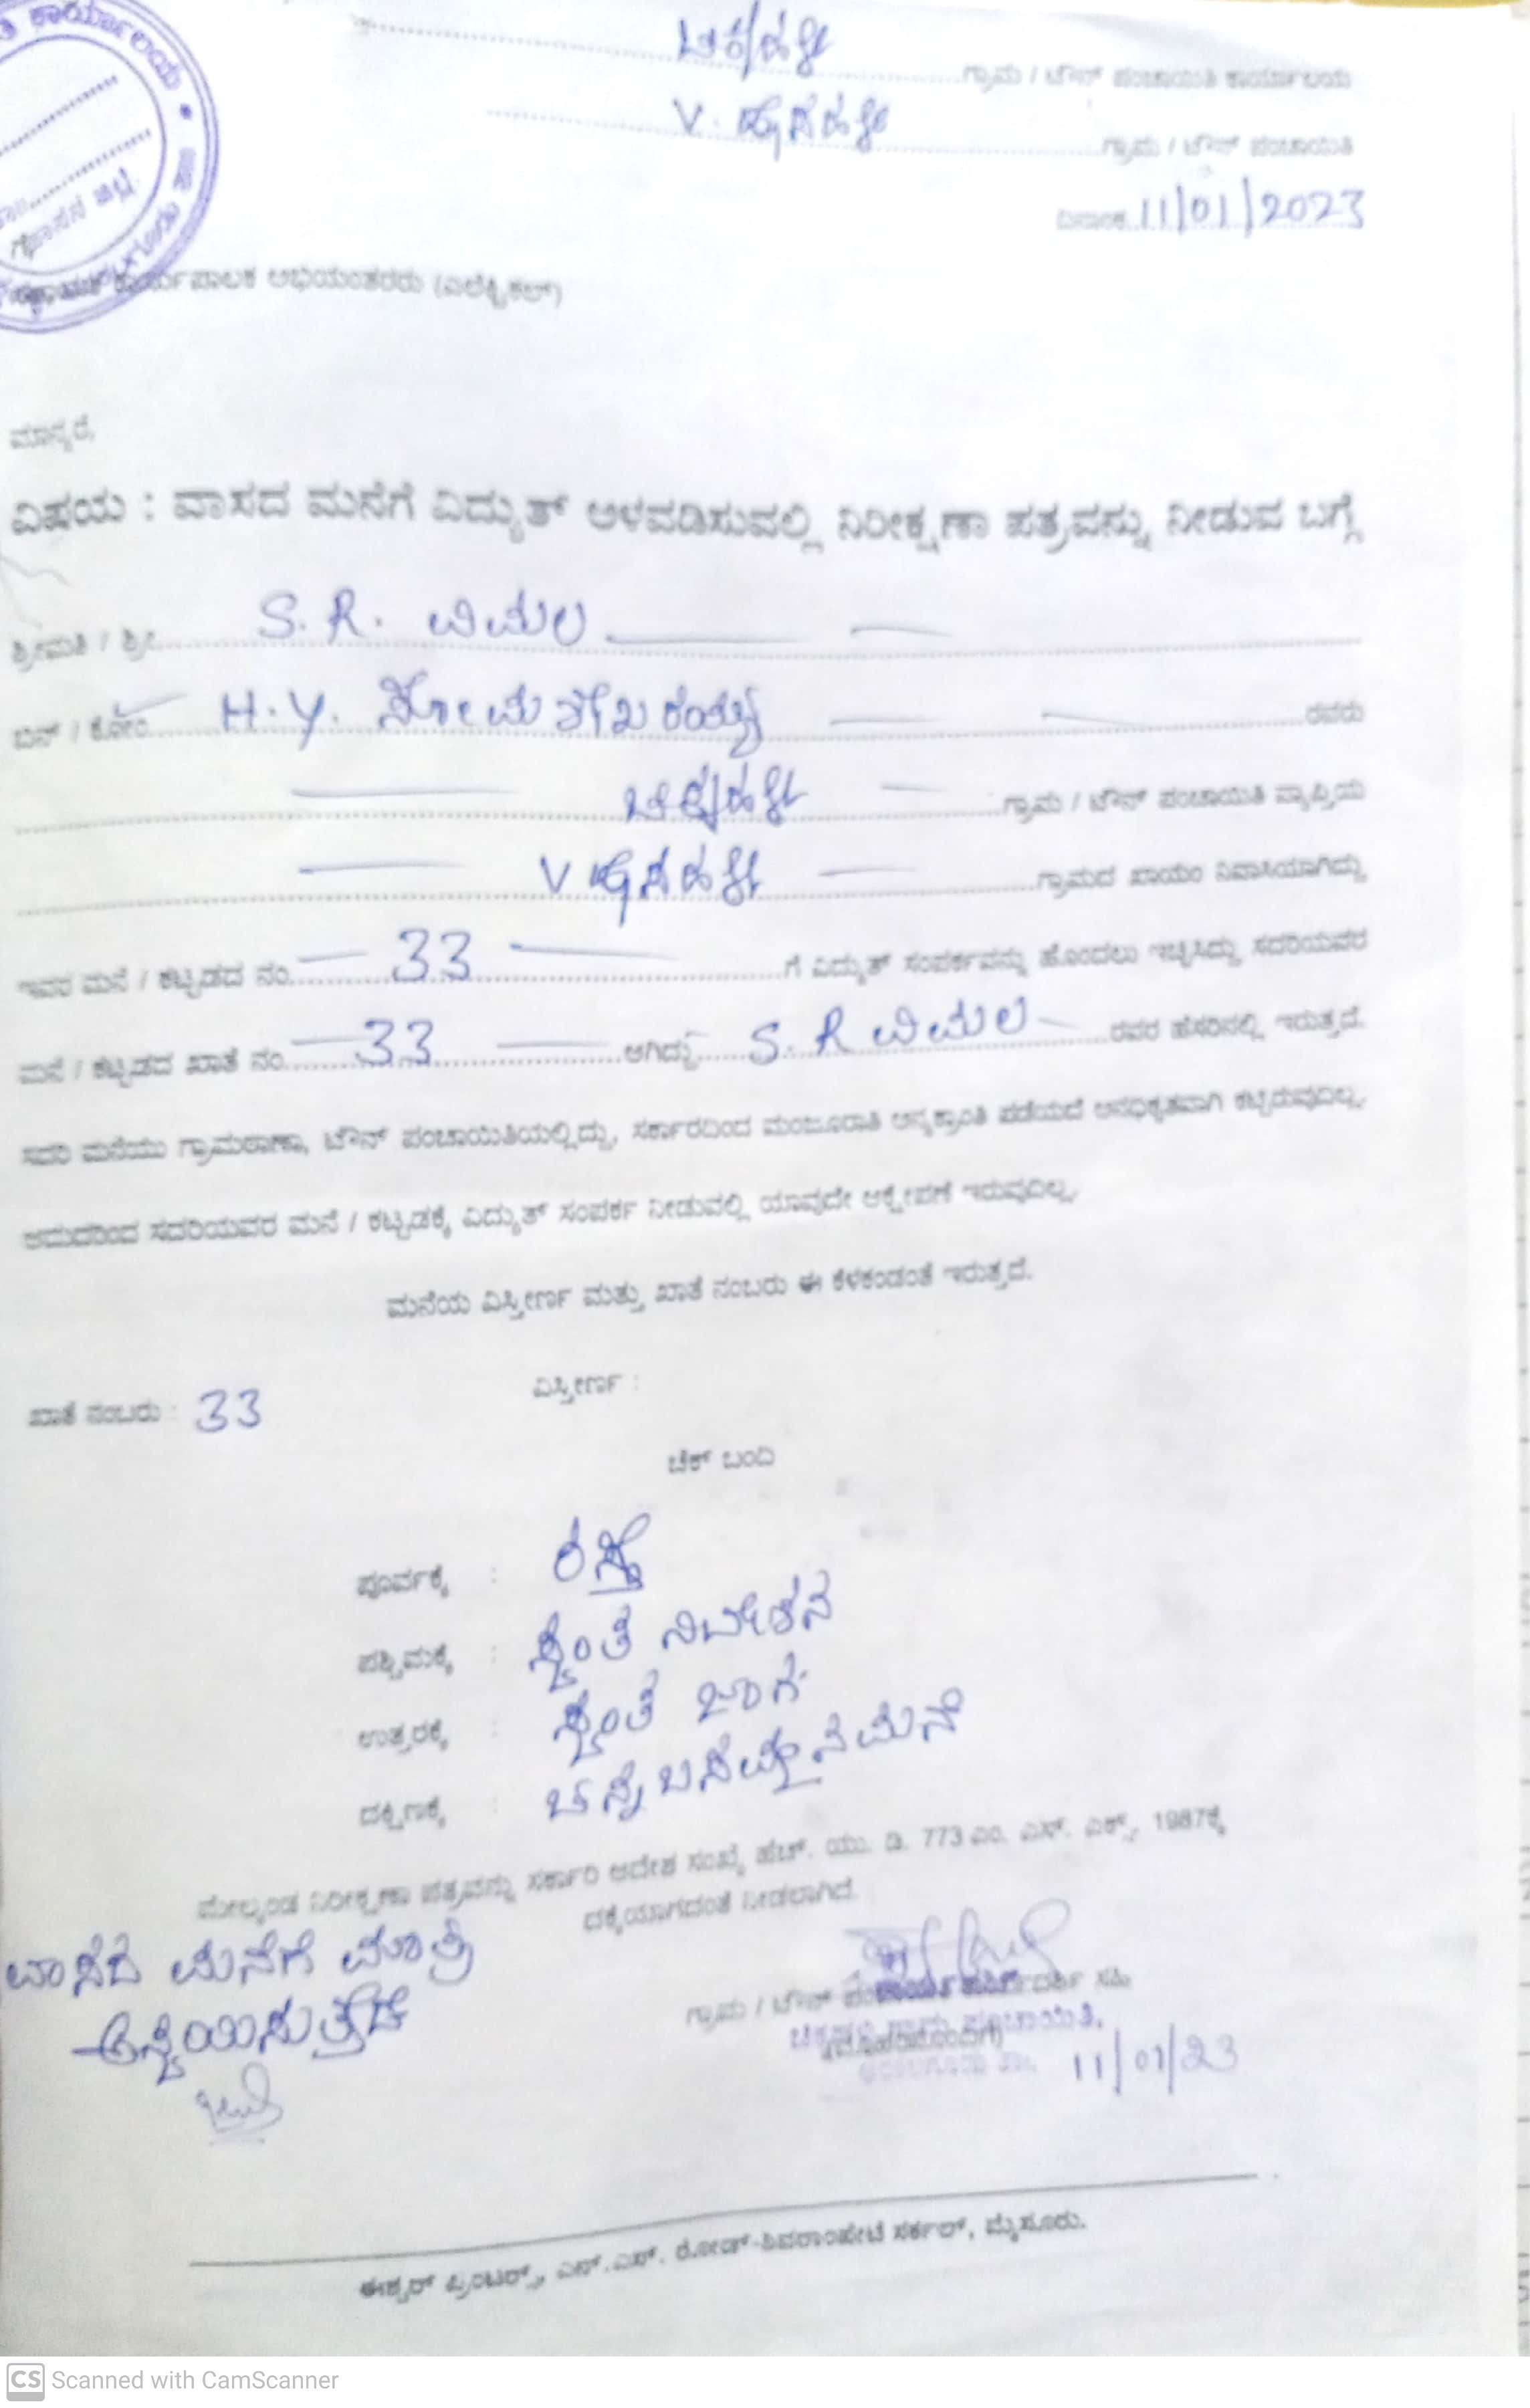 ಚಿಕ್ಕಹಳ್ಳಿ ಗ್ರಾಮ / ಟೌನ್ ಪಂಚಾಯಿತಿ ಕಾರ್ಯಾಲಯ
V. ಹೊಸಹಳ್ಳಿ ಗ್ರಾಮ / ಟೌನ್ ಪಂಚಾಯಿತಿ
ದಿನಾಂಕ 11/01/2023
ಕಾರ್ಯಾಲಯ
ಹಾಸನ ಜಿಲ್ಲೆ
ಸಹಾಯಕ ಕಾರ್ಯಪಾಲಕ ಅಭಿಯಂತರರು (ಎಲೆಕ್ಟ್ರಿಕಲ್)
ಮಾನ್ಯರೆ,
ವಿಷಯ : ವಾಸದ ಮನೆಗೆ ವಿದ್ಯುತ್ ಅಳವಡಿಸುವಲ್ಲಿ ನಿರೀಕ್ಷಣಾ ಪತ್ರವನ್ನು ನೀಡುವ ಬಗ್ಗೆ
ಶ್ರೀಮತಿ / ಶ್ರೀ S. R. ವಿಮಲ
ಬಿನ್ / ಕೋಂ H. Y. ಸೋಮಶೇಖರಯ್ಯ ರವರು
ಚಿಕ್ಕಹಳ್ಳಿ ಗ್ರಾಮ / ಟೌನ್ ಪಂಚಾಯಿತಿ ವ್ಯಾಪ್ತಿಯ
V ಹೊಸಹಳ್ಳಿ ಗ್ರಾಮದ ಖಾಯಂ ನಿವಾಸಿಯಾಗಿದ್ದು
ಇವರ ಮನೆ / ಕಟ್ಟಡದ ನಂ. 33 ಗೆ ವಿದ್ಯುತ್ ಸಂಪರ್ಕವನ್ನು ಹೊಂದಲು ಇಚ್ಛಿಸಿದ್ದು ಸದರಿಯವರ
ಮನೆ / ಕಟ್ಟಡದ ಖಾತೆ ನಂ. 33 ಆಗಿದ್ದು S. R ವಿಮಲ ರವರ ಹೆಸರಿನಲ್ಲಿ ಇರುತ್ತದೆ.
ಸದರಿ ಮನೆಯು ಗ್ರಾಮಠಾಣಾ, ಟೌನ್ ಪಂಚಾಯಿತಿಯಲ್ಲಿದ್ದು, ಸರ್ಕಾರದಿಂದ ಮಂಜೂರಾತಿ ಅನ್ಯಕ್ರಾಂತಿ ಪಡೆಯದೆ ಅನಧಿಕೃತವಾಗಿ ಕಟ್ಟಿರುವುದಿಲ್ಲ.
ಆದುದರಿಂದ ಸದರಿಯವರ ಮನೆ / ಕಟ್ಟಡಕ್ಕೆ ವಿದ್ಯುತ್ ಸಂಪರ್ಕ ನೀಡುವಲ್ಲಿ ಯಾವುದೇ ಆಕ್ಷೇಪಣೆ ಇರುವುದಿಲ್ಲ.
ಮನೆಯ ವಿಸ್ತೀರ್ಣ ಮತ್ತು ಖಾತೆ ನಂಬರು ಈ ಕೆಳಕಂಡಂತೆ ಇರುತ್ತದೆ.
ಖಾತೆ ನಂಬರು : 33 ವಿಸ್ತೀರ್ಣ :
ಚೆಕ್ ಬಂದಿ
ಪೂರ್ವಕ್ಕೆ : ರಸ್ತೆ
ಪಶ್ಚಿಮಕ್ಕೆ : ಸ್ವಂತ ನಿವೇಶನ
ಉತ್ತರಕ್ಕೆ : ಸ್ವಂತ ಜಾಗ
ದಕ್ಷಿಣಕ್ಕೆ : ಚನ್ನಬಸಪ್ಪನ ಮನೆ
ಮೇಲ್ಕಂಡ ನಿರೀಕ್ಷಣಾ ಪತ್ರವನ್ನು ಸರ್ಕಾರಿ ಆದೇಶ ಸಂಖ್ಯೆ ಹೆಚ್. ಯು. ಡಿ. 773 ಎಂ. ಎಸ್. ಎಕ್ಸ್. 1987ಕ್ಕೆ
ದಕ್ಕೆಯಾಗದಂತೆ ನೀಡಲಾಗಿದೆ.
ವಾಸದ ಮನೆಗೆ ಮಾತ್ರ
ಅನ್ವಯಿಸುತ್ತದೆ
ಗ್ರಾಮ / ಟೌನ್ ಪಂಚಾಯಿತಿ ಕಾರ್ಯದರ್ಶಿ ಸಹಿ
ಗ್ರಾಮ ಪಂಚಾಯಿತಿ.
(ಮೊಹರಿನೊಂದಿಗೆ)
11/01/23
ಈಶ್ವರ್ ಪ್ರಿಂಟರ್ಸ್, ಎನ್.ಎಸ್. ರೋಡ್-ಶಿವರಾಂಪೇಟೆ ಸರ್ಕಲ್, ಮೈಸೂರು.
CS Scanned with CamScanner